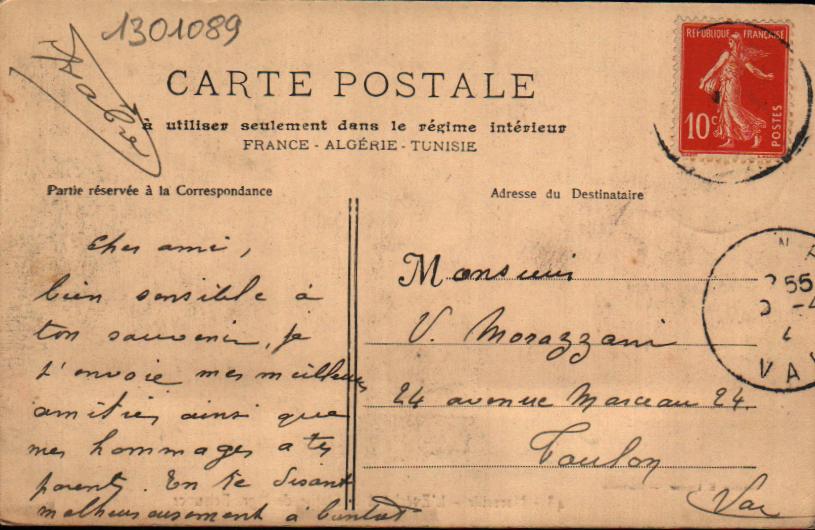 1301089
CARTE POSTALE
à utiliser seulement dans le régime intérieur
FRANCE - ALGÉRIE - TUNISIE
RÉPUBLIQUE FRANÇAISE
10c
POSTES
Partie réservée à la Correspondance
Adresse du Destinataire
Cher ami,
bien sensible à
ton souvenir, je
t'envoie mes meilleures
amitiés ainsi que
mes hommages a tes
parents. En te disant
malheureusement à bientôt
Monsieur
V. Morazzani
24 avenue Marceau 24.
Toulon
Var
55
VAR